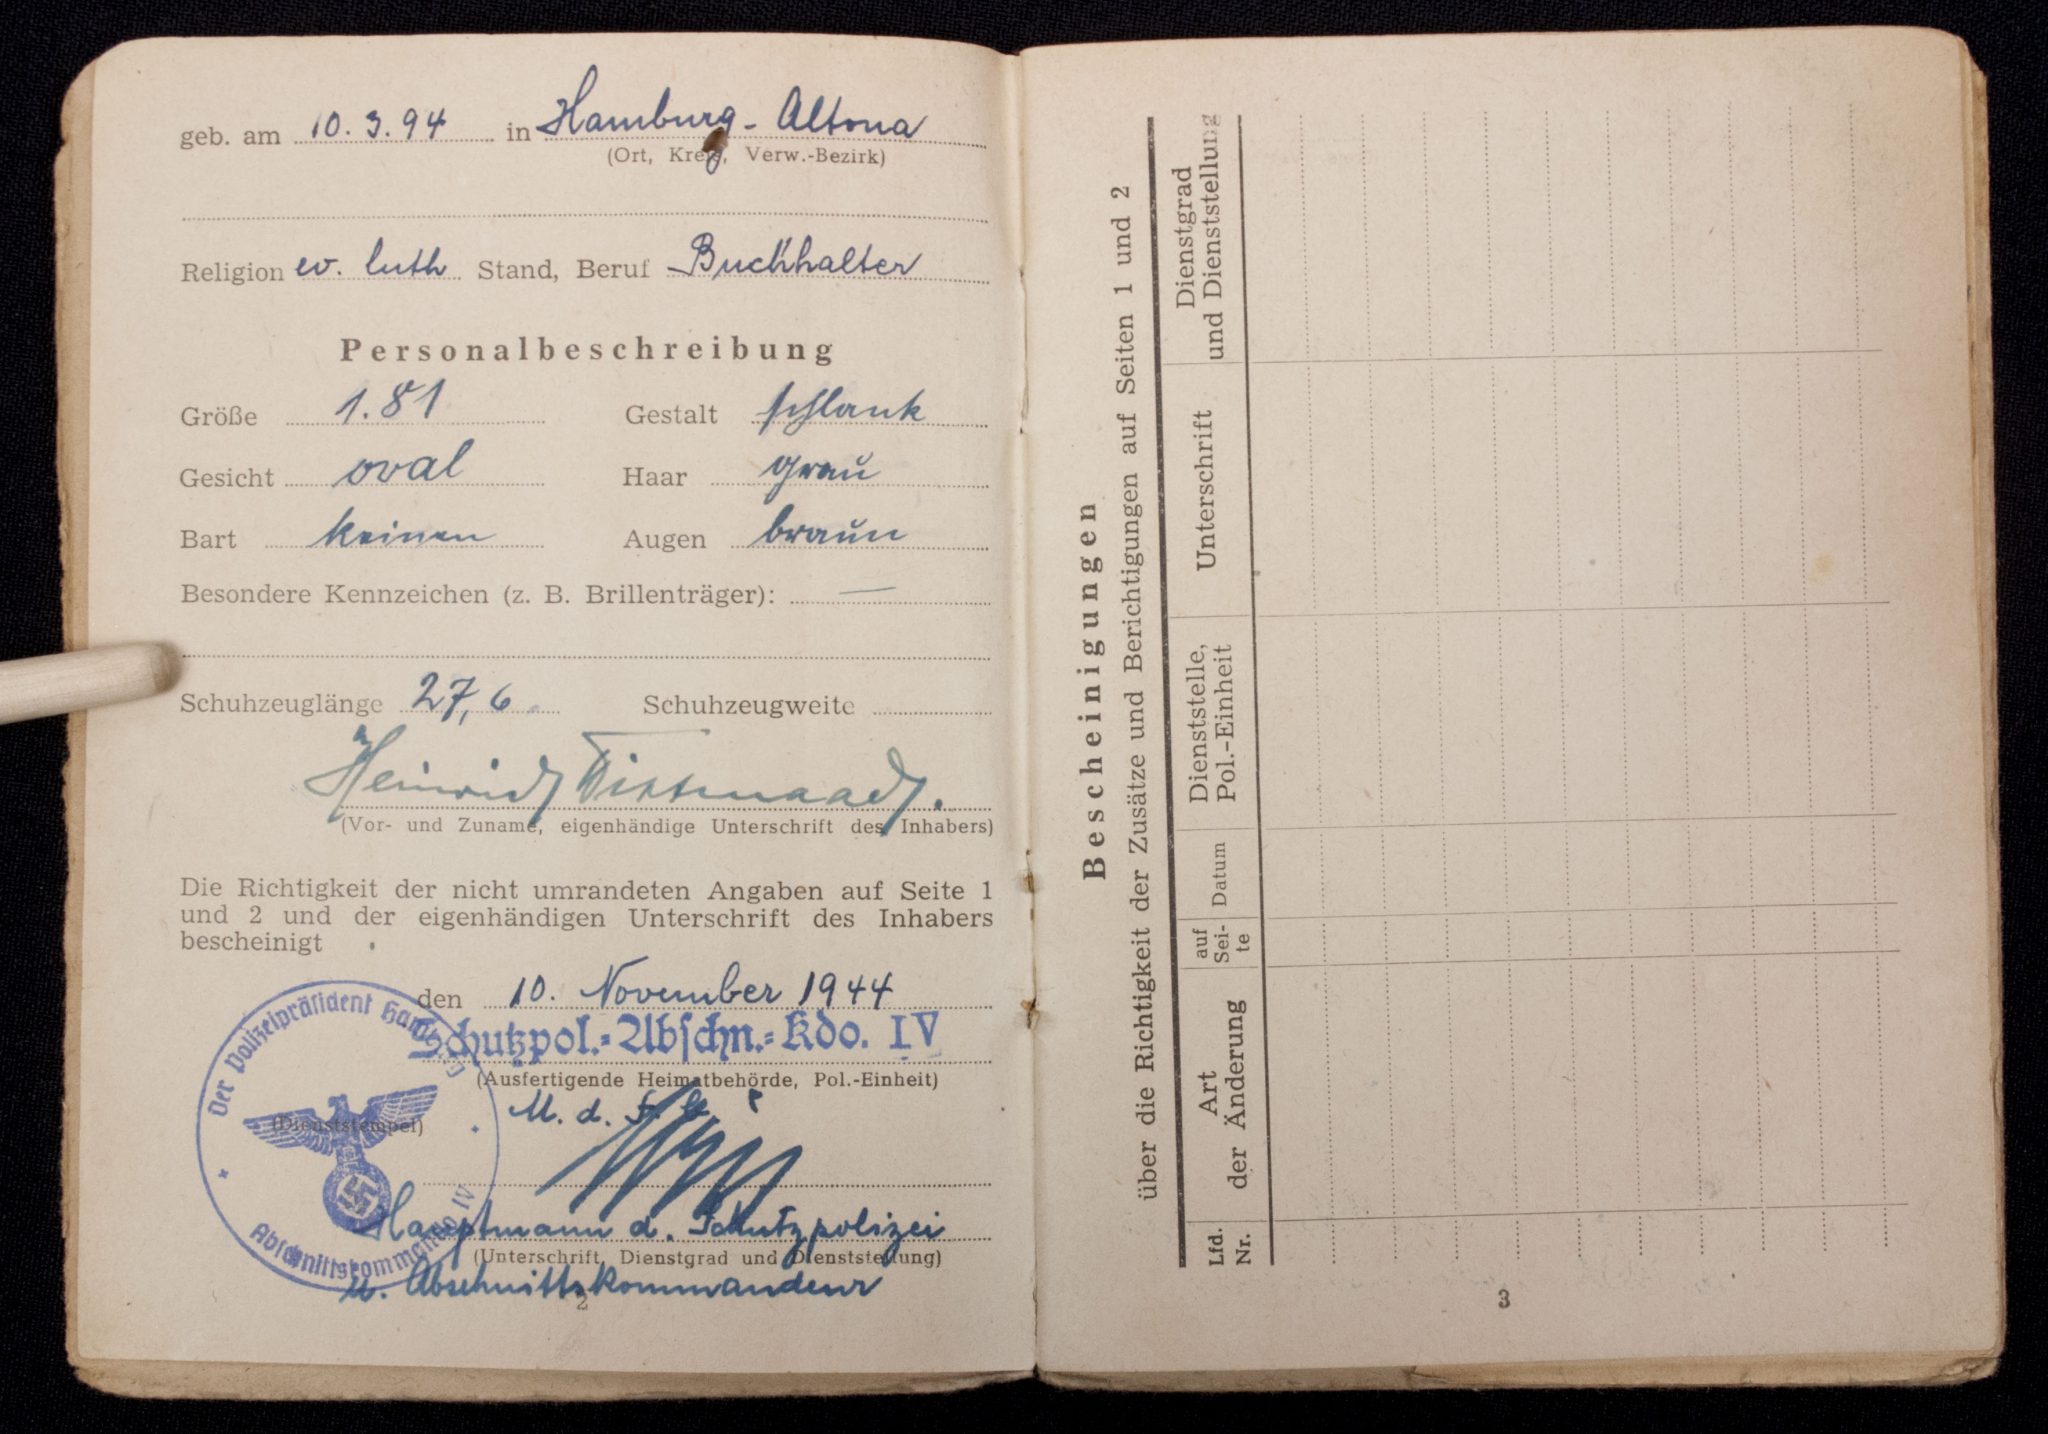 geb. am 10.3.94 in Hamburg-Altona
(Ort, Kreis, Verw.-Bezirk)
Religion ev. luth Stand, Beruf Buchhalter
Personalbeschreibung
Größe 1.81 Gestalt schlank
Gesicht oval Haar grau
Bart keinen Augen braun
Besondere Kennzeichen (z. B. Brillenträger): —
Schuhzeuglänge 27,6 Schuhzeugweite
Heinrich
(Vor- und Zuname, eigenhändige Unterschrift des Inhabers)
Die Richtigkeit der nicht umrandeten Angaben auf Seite 1
und 2 und der eigenhändigen Unterschrift des Inhabers
bescheinigt
den 10. November 1944
Schutzpol.-Abschn.-Kdo. IV
(Ausfertigende Heimatbehörde, Pol.-Einheit)
M. d. F. b.
Der Polizeipräsident Hamburg
(Dienststempel)
Abschnittskommando IV
Hauptmann d. Schutzpolizei
(Unterschrift, Dienstgrad und Dienststellung)
u. Abschnittskommandeur
2
Bescheinigungen
über die Richtigkeit der Zusätze und Berichtigungen auf Seiten 1 und 2
Lfd. Nr.
Art der Änderung
auf Sei-te
Datum
Dienststelle, Pol.-Einheit
Unterschrift
Dienstgrad und Dienststellung
3